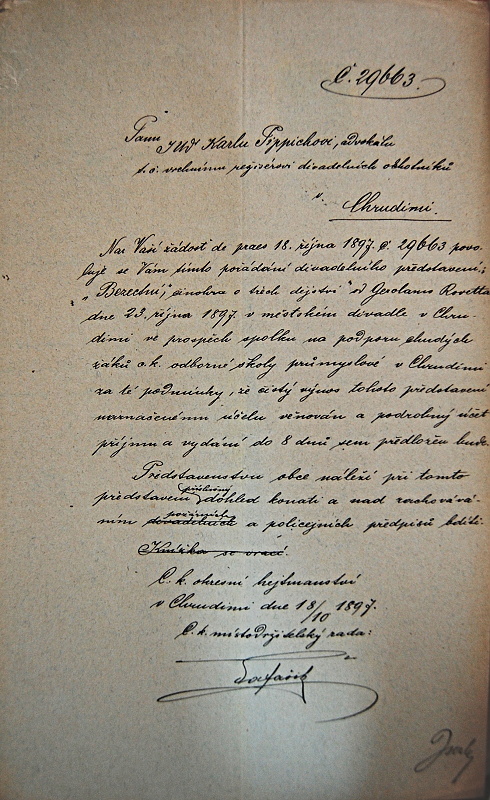 Č. 29663.
Panu JUDr Karlu Pippichovi, advokátu
t. č. vrchnímu regisérovi divadelních ochotníků
v
Chrudimi.
Na Vaši žádost de praes 18. října 1897 č. 29663 povo-
luje se Vám tímto pořádání divadelního představení:
"Bezectní", činohra o třech dějství od Gerolamo Rovetta
dne 23. října 1897 v městském divadle v Chru-
dimi ve prospěch spolku na podporu chudých
žáků c. k. odborné školy průmyslové v Chrudimi
za té podmínky, že čistý výnos tohoto představení
naznačenému účelu věnován a podrobný účet
příjmu a vydání do 8 dnů sem předložen bude.
Představenstvu obce náleží při tomto
představení příslušný dohled konati a nad zachovává-
ním divadelních požárních a policejních předpisů bdíti.
Knížka se vrací.
C. k. okresní hejtmanství
v Chrudimi dne 18/10 1897.
C. k. místodržitelský rada: